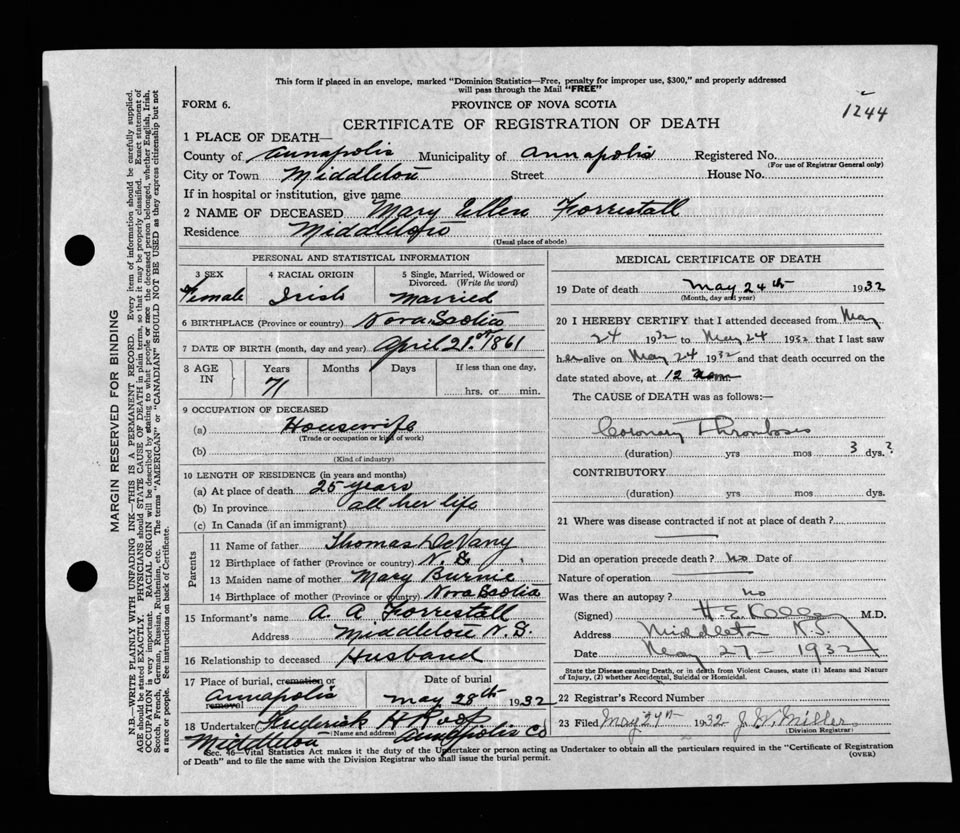 This form if placed in an envelope, marked "Dominion Statistics—Free, penalty for improper use, $300," and properly addressed
will pass through the Mail "FREE"
FORM 6.
PROVINCE OF NOVA SCOTIA
1244
CERTIFICATE OF REGISTRATION OF DEATH
1 PLACE OF DEATH—
County of Annapolis Municipality of Annapolis Registered No.
(For use of Registrar General only)
City or Town Middleton Street House No.
If in hospital or institution, give name
2 NAME OF DECEASED Mary Ellen Forrestall
Residence Middleton
(Usual place of abode)
PERSONAL AND STATISTICAL INFORMATION
3 SEX Female
4 RACIAL ORIGIN Irish
5 Single, Married, Widowed or Divorced. (Write the word) Married
6 BIRTHPLACE (Province or country) Nova Scotia
7 DATE OF BIRTH (month, day and year) April 21st 1861
8 AGE IN Years 71 Months Days If less than one day, hrs. or min.
9 OCCUPATION OF DECEASED
(a) Housewife
(Trade or occupation or kind of work)
(b)
(Kind of industry)
10 LENGTH OF RESIDENCE (in years and months)
(a) At place of death 25 years
(b) In province all her life
(c) In Canada (if an immigrant)
Parents
11 Name of father Thomas DeVany
12 Birthplace of father (Province or country) N. S
13 Maiden name of mother Mary Burnie
14 Birthplace of mother (Province or country) Nova Scotia
15 Informant's name A. A Forrestall
Address Middleton N.S.
16 Relationship to deceased Husband
17 Place of burial, cremation or removal Annapolis
Date of burial May 28th 1932
18 Undertaker Frederick H Roop
(Name and address)
Middleton Annapolis Co
MEDICAL CERTIFICATE OF DEATH
19 Date of death May 24th 1932
(Month, day and year)
20 I HEREBY CERTIFY that I attended deceased from May
24 1932 to May 24 1932 that I last saw
her alive on May 24 1932 and that death occurred on the
date stated above, at 12 noon
The CAUSE OF DEATH was as follows:—
Coronary Thrombosis
(duration) yrs mos 3 dys.?
CONTRIBUTORY
(duration) yrs mos dys.
21 Where was disease contracted if not at place of death?
Did an operation precede death? no Date of
Nature of operation
Was there an autopsy? no
(Signed) H. E. Kelley M.D.
Address Middleton N.S.
Date May 27 – 1932
State the Disease causing Death, or in death from Violent Causes, state (1) Means and Nature
of Injury, (2) whether Accidental, Suicidal or Homicidal.
22 Registrar's Record Number
23 Filed May 27th 1932 J. W. Miller
(Division Registrar)
Sec. 46—Vital Statistics Act makes it the duty of the Undertaker or person acting as Undertaker to obtain all the particulars required in the "Certificate of Registration
of Death" and to file the same with the Division Registrar who shall issue the burial permit.
(OVER)
MARGIN RESERVED FOR BINDING
N.B.—WRITE PLAINLY WITH UNFADING INK—THIS IS A PERMANENT RECORD. Every item of information should be carefully supplied.
AGE should be stated EXACTLY. PHYSICIANS should STATE CAUSE OF DEATH in plain terms, so that it may be properly classified. Exact statement of
OCCUPATION is very important. RACIAL ORIGIN will be described by stating to what people or race the deceased person belonged, whether English, Irish,
Scotch, French, German, Russian, Ruthenian, etc. The terms "AMERICAN" or "CANADIAN" SHOULD NOT BE USED as they express citizenship but not
a race or people. See instructions on back of Certificate.